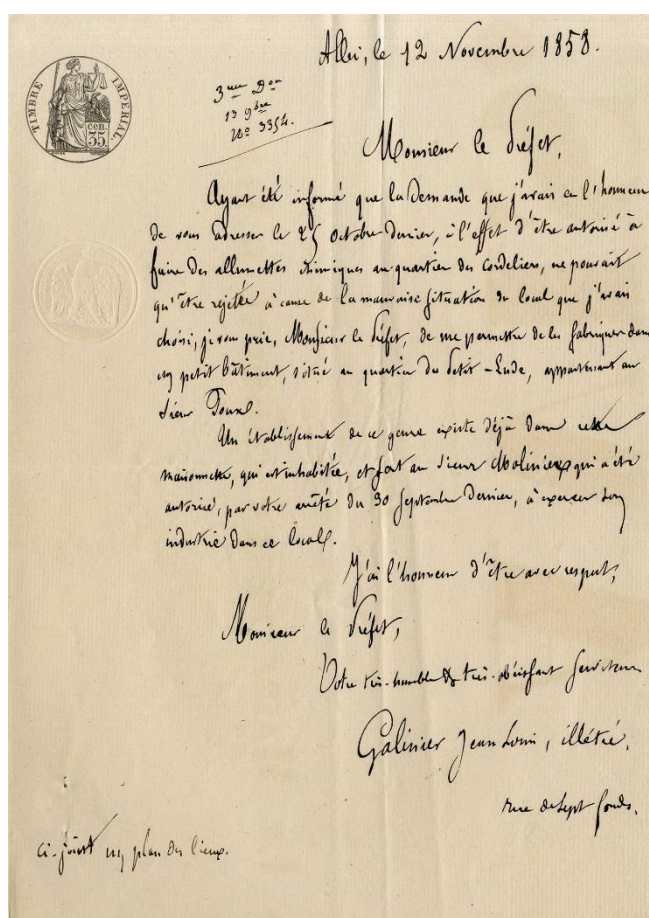 Albi, le 12 Novembre 1858.
TIMBRE IMPERIAL.
35
cen.
3me Don
13 9bre
No 3354.
Monsieur le Préfet,
Ayant été informé que la Demande que j'avais eu l'honneur
de vous adresser le 25 Octobre Dernier, à l'effet d'être autorisé à
faire des allumettes chimiques au quartier des Cordeliers, ne pouvait
qu'être rejetée à cause de la mauvaise situation du local que j'avais
choisi, je vous prie, Monsieur le Préfet, de me permettre de les fabriquer dans
un petit bâtiment, situé au quartier du Petit-Lude, appartenant au
Sieur
Un établissement de ce genre existe déjà dans cette
maisonnette, qui est inhabitée, et sert au sieur Molinier qui a été
autorisé, par votre arrêté du 30 Septembre Dernier, à exercer son
industrie dans ce local.
J'ai l'honneur d'être avec respect,
Monsieur le Préfet,
Votre très-humble & très-obéissant serviteur
Galinier Jean Louis, illétré,
rue de Sept fonds.
ci-joint un plan des lieux.